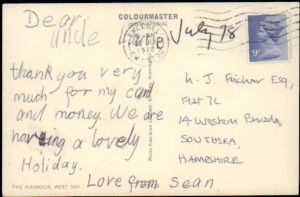 COLOURMASTER
INTERNATIONAL
Dear
uncle Len
July 78
thankyou very
much for my card
and money. We are
having a lovely
Holiday.
Love from Sean.
9P
Flat 7C
14 Western Parade,
SOUTHSEA,
HAMPSHIRE
THE HARBOUR, WEST BAY